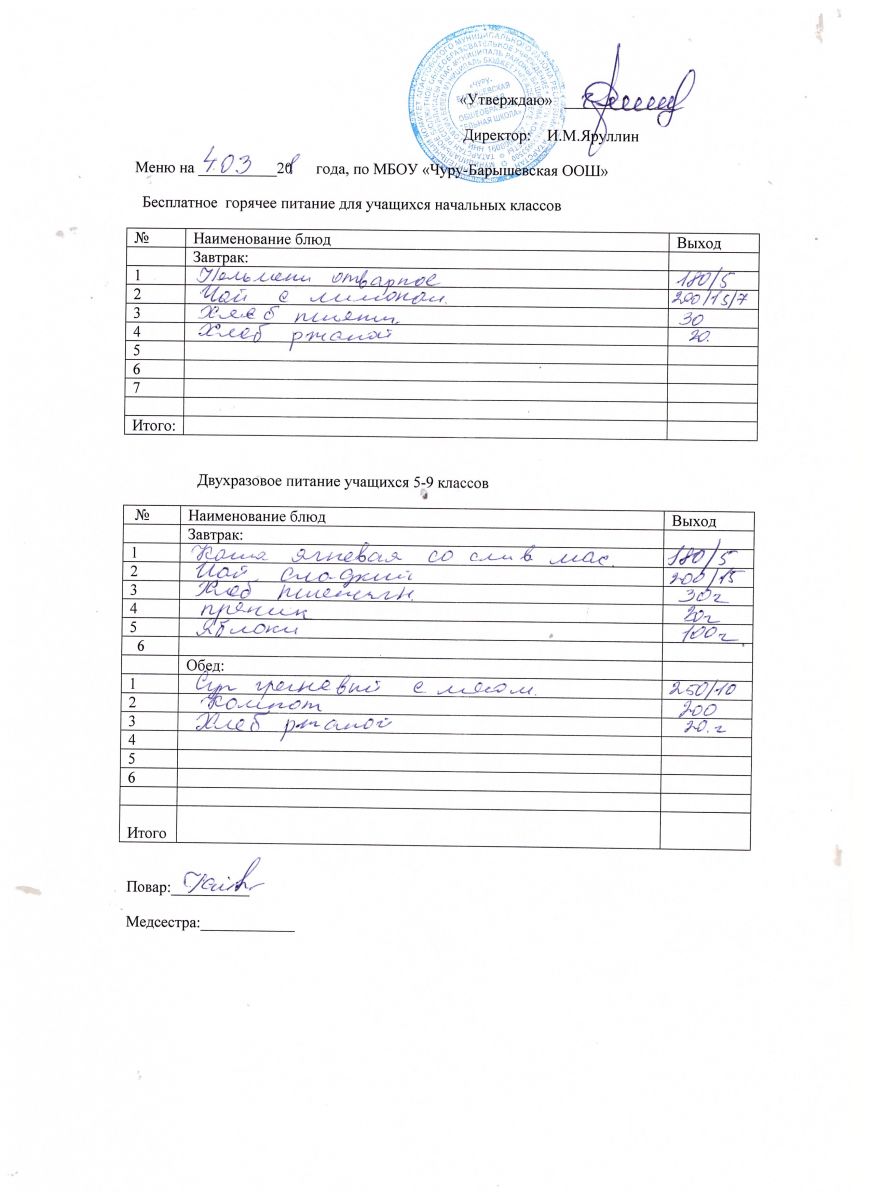 «Утверждаю»
Директор: И.М.Яруллин
Меню на 4.03 20 года, по МБОУ «Чуру-Барышевская ООШ»
Бесплатное горячее питание для учащихся начальных классов
№ Наименование блюд Выход
Завтрак:
1 Пельмени отварное 180/5
2 Чай с лимоном 200/15/7
3 Хлеб пшенич. 30
4 Хлеб ржаной 20.
5
6
7
Итого:
Двухразовое питание учащихся 5-9 классов
№ Наименование блюд Выход
Завтрак:
1 Каша ячневая со слив мас. 180/5
2 Чай сладкий 200/15
3 Хлеб 30г
4 пряник 20г
5 Яблоки 100г
6
Обед:
1 Суп гречневый с мясом. 250/10
2 Компот 200
3 Хлеб ржаной 20.г
4
5
6
Итого
Повар:
Медсестра: